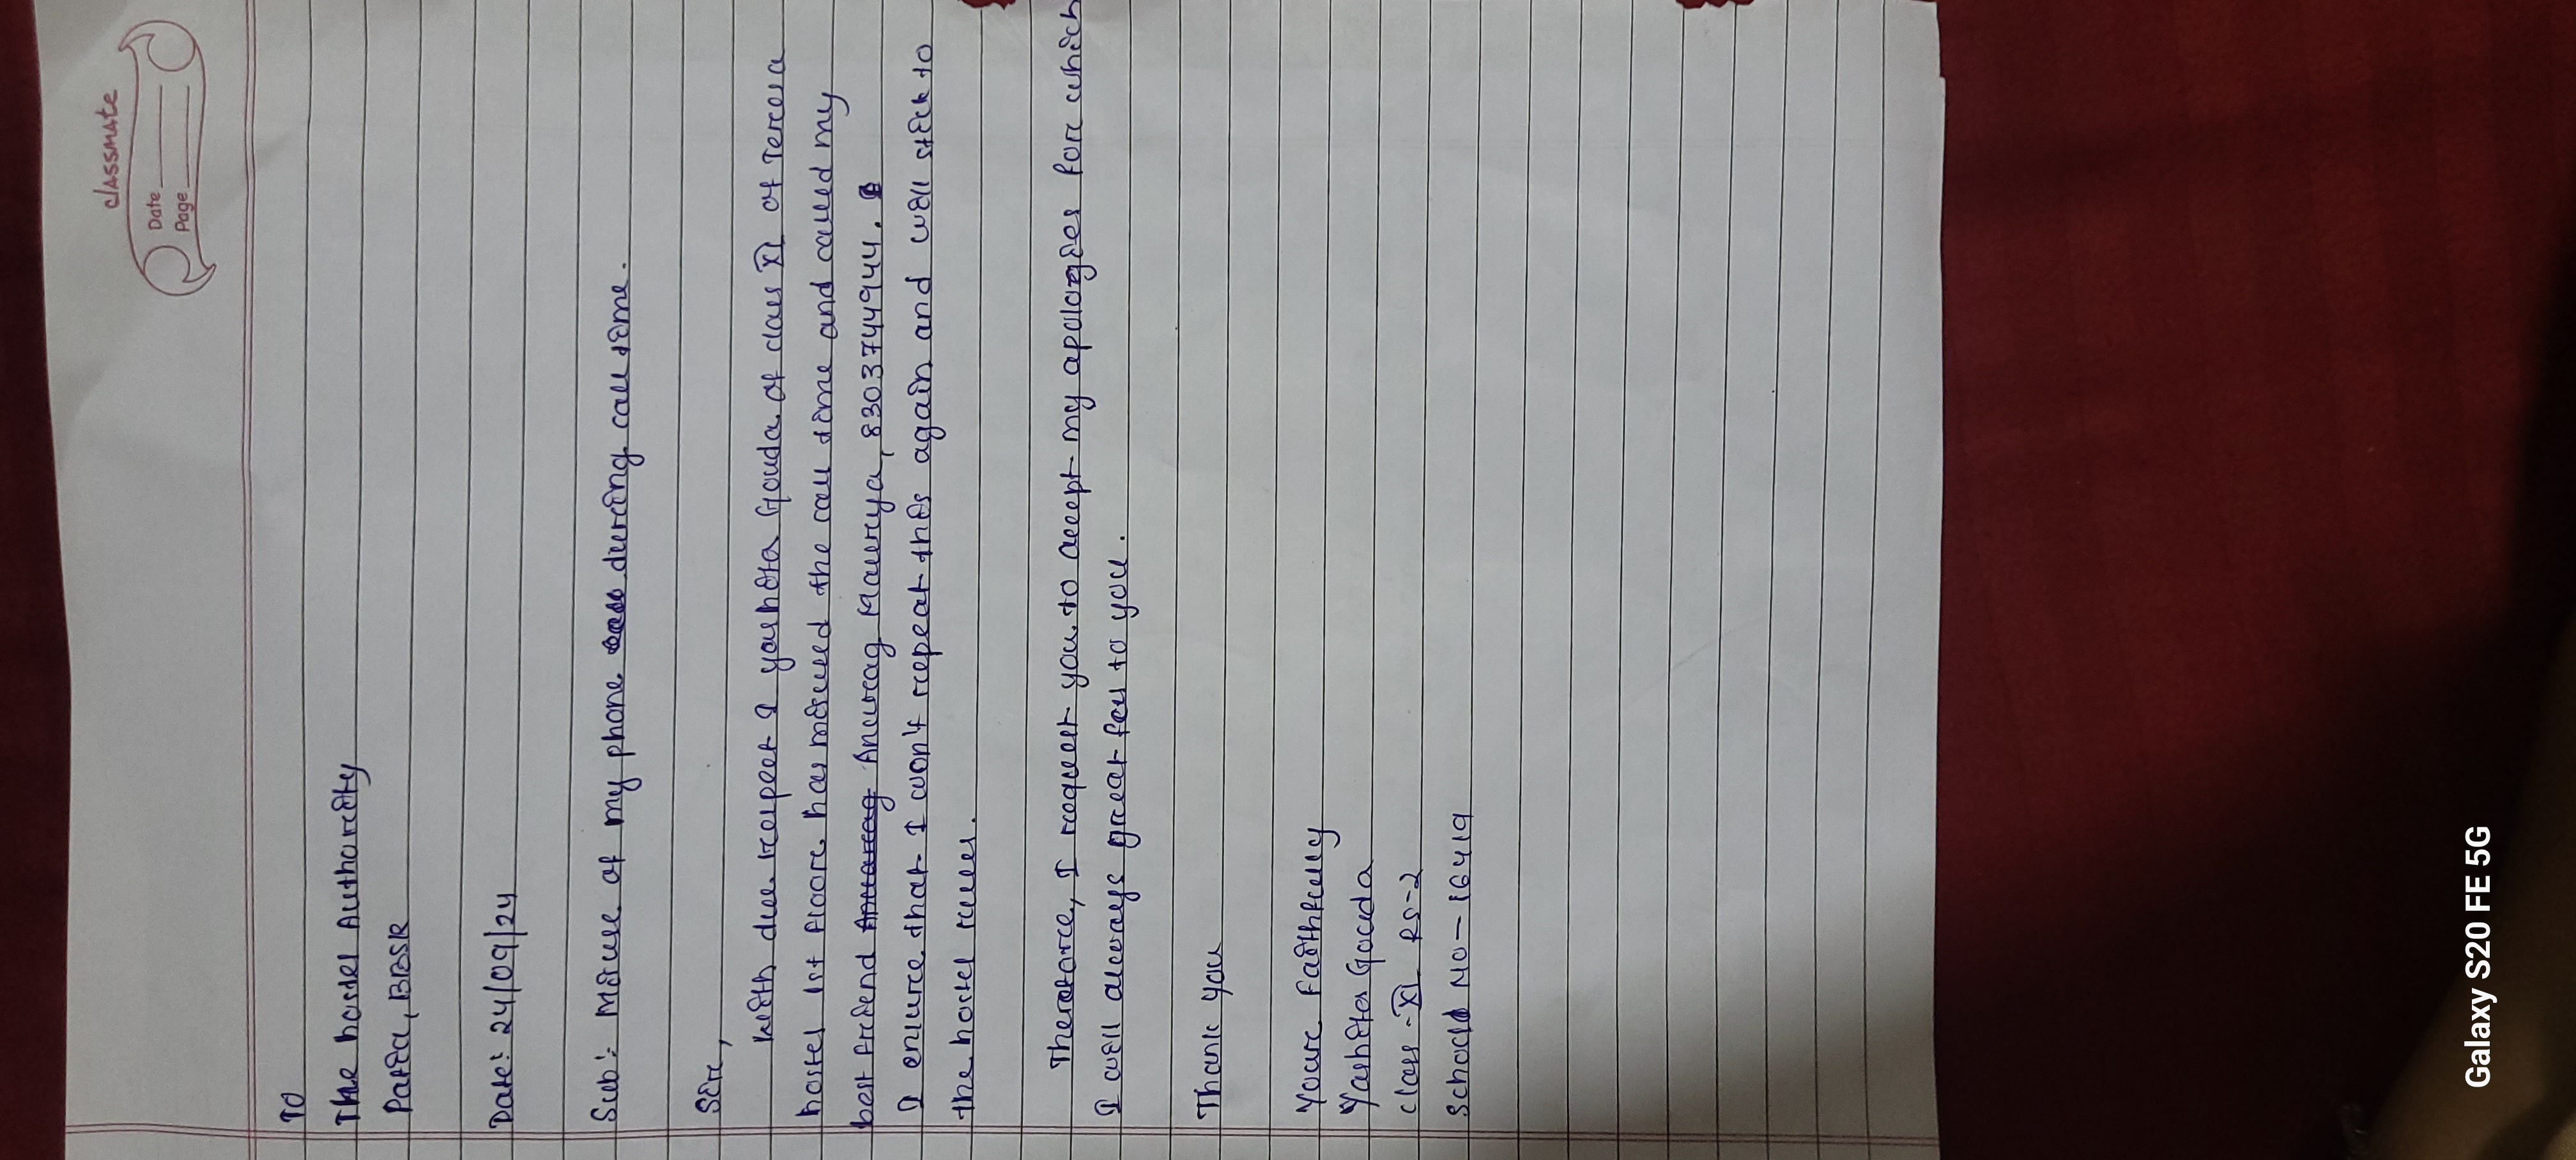 classmate
Date
Page
To
The hostel Authority
Patia, BBSR
Date: 24/09/24
Sub: Misuse of my phone during call time.
Sir,
With due respect I Yashita Gouda of class XI of Teresa
hostel 1st floor has misused the call time and called my
best friend Anurag Anurag Maurya, 8303744944.
I ensure that I won't repeat this again and will stick to
the hostel rules.
Therefore, I request you to accept my apologies for which
I will always great full to you.
Thank you
Your Faithfully
Yashita Gouda
Class - XI RS-2
School No - 16419
Galaxy S20 FE 5G